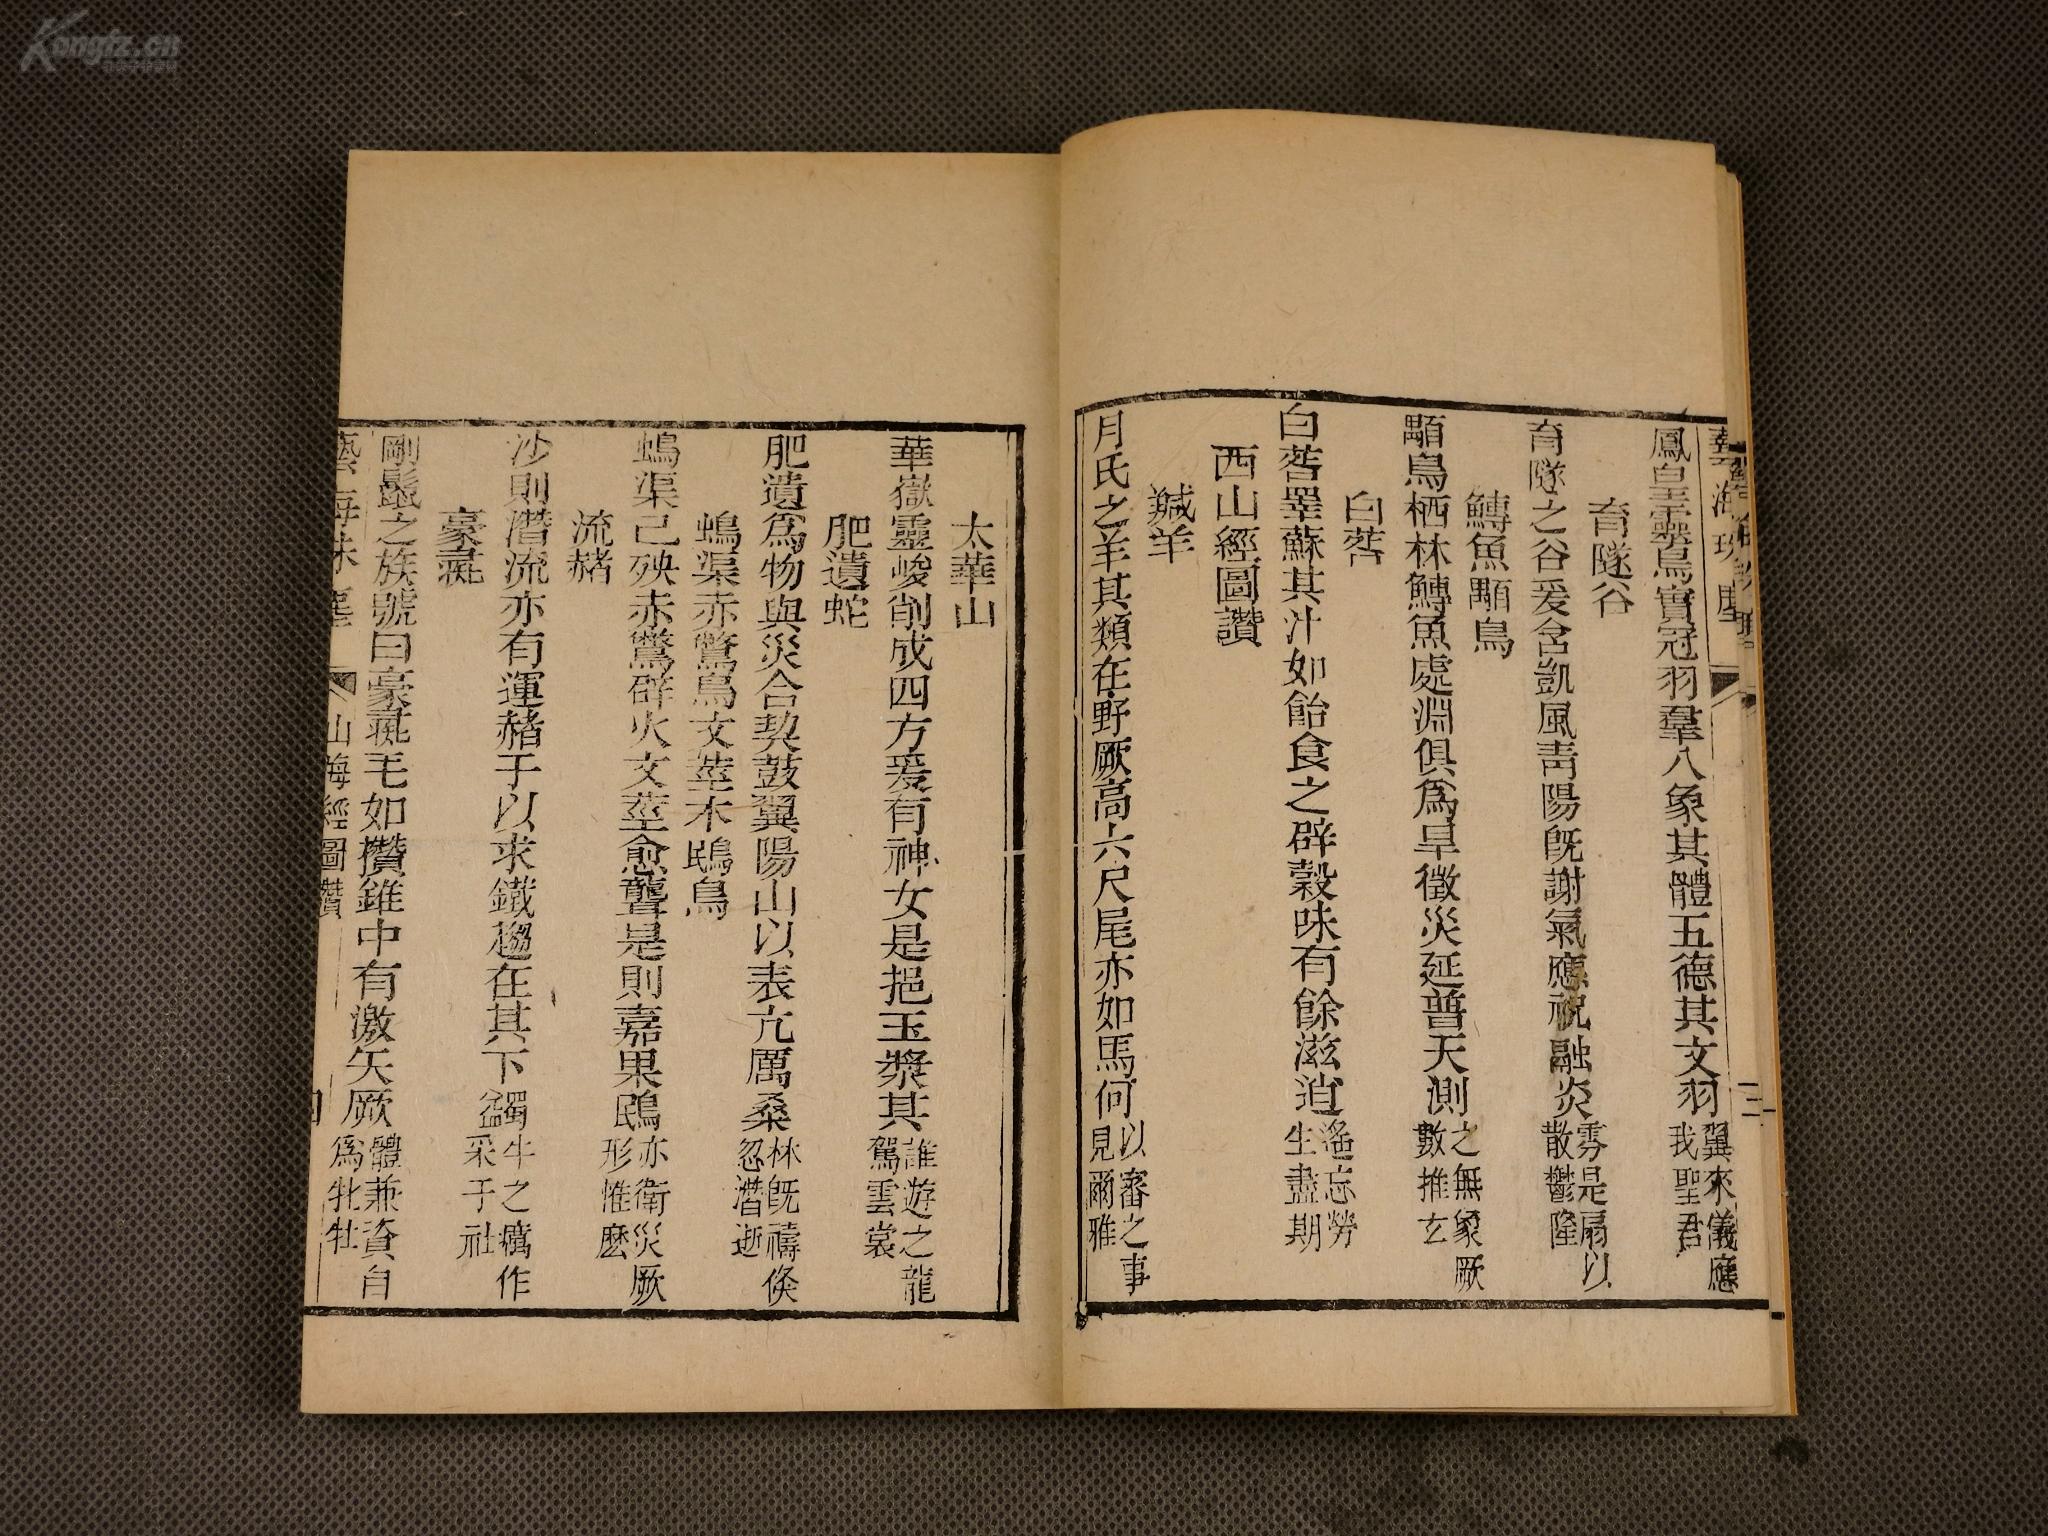 Kongfz.cn
鳳皇靈鳥實冠羽羣八象其體五德其文羽翼來儀應我聖君
育隧谷
育隧之谷爰含凱風青陽既謝氣應祝融炎雰是扇以散鬱隆
鱄魚顒鳥
顒鳥栖林鱄魚處淵俱為旱徵災延普天測之無象厥數推玄
白䓘
白䓘睪蘇其汁如飴食之辟穀味有餘滋逍遙忘勞生盡期
西山經圖讚
羬羊
月氏之羊其類在野厥高六尺尾亦如馬何以審之事見爾雅
三
太華山
華嶽靈峻削成四方爰有神女是挹玉漿其誰遊之龍駕雲裳
肥遺蛇
肥遺為物與災合契鼓翼陽山以表亢厲桑林既禱倏忽潛逝
鴟渠赤鷩鳥文莖木鴖鳥
鴟渠已殃赤鷩辟火文莖愈聾是則嘉果鴖亦衛災厥形惟麽
流赭
沙則潛流亦有運赭于以求鐵趨在其下蠲牛之癘作采于社
豪彘
剛鬣之族號曰豪彘毛如攢錐中有激矢厥體兼資自為牝牡
藝海珠塵
山海經圖讚
四